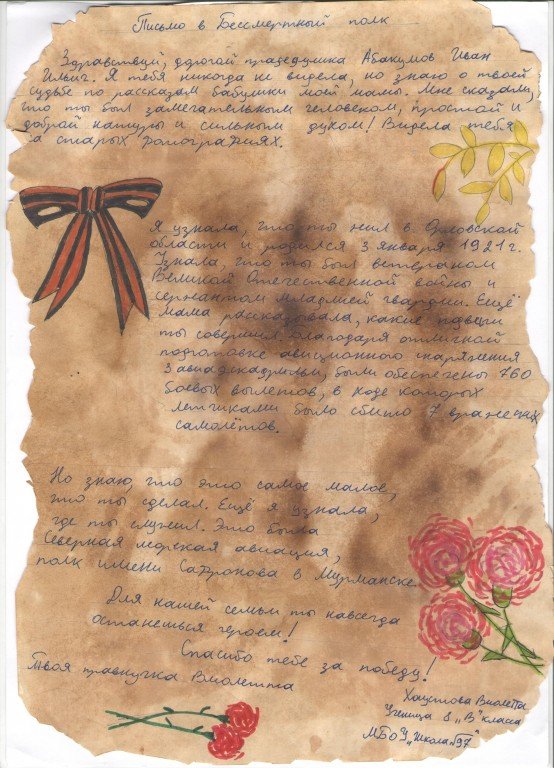 Письмо в Бессмертный полк
Здравствуй, дорогой прадедушка Абакумов Иван
Ильич. Я тебя никогда не видела, но знаю о твоей
судьбе по рассказам бабушки моей мамы. Мне сказали,
что ты был замечательным человеком, простой и
доброй натуры и сильным духом! Видела тебя
на старых фотографиях.
Я узнала, что ты жил в Орловской
области и родился 3 января 1921 г.
Узнала, что ты был ветераном
Великой Отечественной войны и
сержантом младшей гвардии. Ещё
мама рассказывала, какие подвиги
ты совершил. Благодаря отличной
подготовке авиционного снаряжения
3 авиаэскадрильи, были обеспечены 760
боевых вылетов, в ходе которых
летчиками было сбито 7 вражеских
самолётов.
Но знаю, что это самое малое,
что ты сделал. Ещё я узнала,
где ты служил. Это была
Северная морская авиация,
полк имени Сафронова в Мурманске.
Для нашей семьи ты навсегда
останешься героем!
Спасибо тебе за победу!
Твоя правнучка Виолетта
Хаустова Виолетта
Ученица 1 „В" класса
МБОУ „Школа №97"